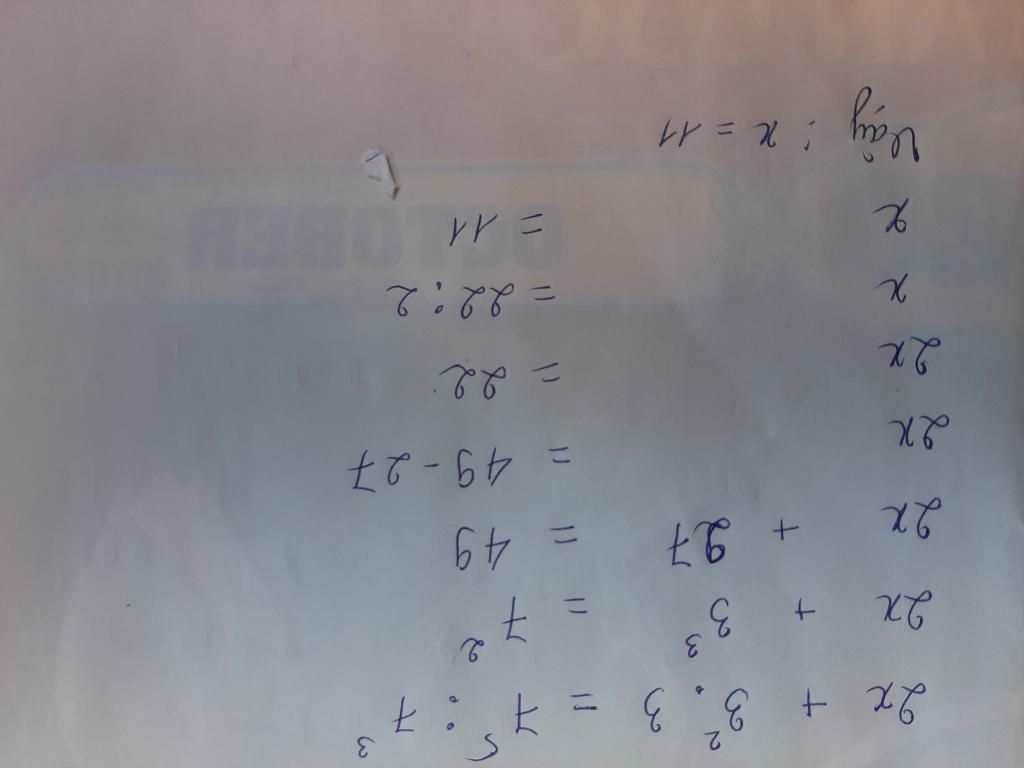 2x + 3² . 3 = 7⁵ : 7³
2x + 3³ = 7²
2x + 27 = 49
2x = 49 - 27
2x = 22
x = 22 : 2
x = 11
Vậy : x = 11
OCTOBER